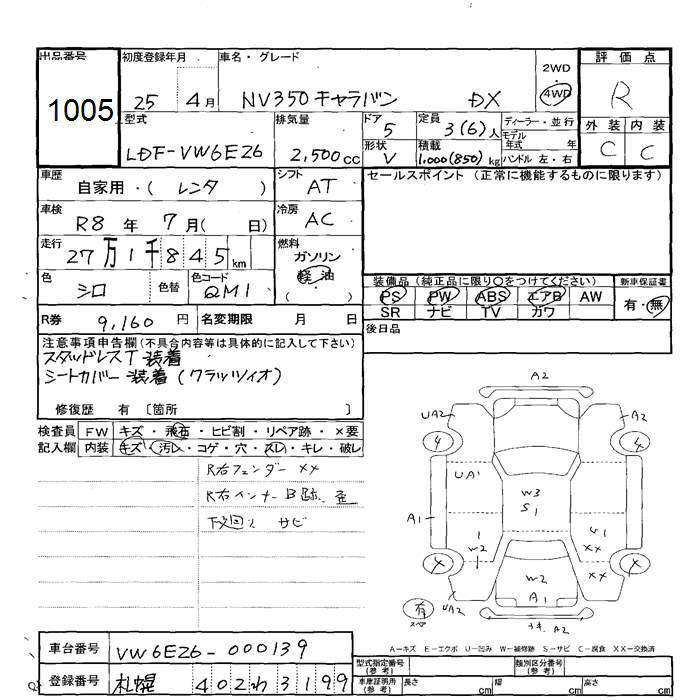 出品番号
1005
初度登録年月
25 4月
車名・グレード
NV350キャラバン DX
2WD
4WD
評価点
R
外装 内装
C C
型式
LDF-VW6E26
排気量
2,500cc
ドア
5
定員
3(6)人
ディーラー・並行
モデル
年式 年
ハンドル 左・右
形状
V
積載
1.000(850)kg
車歴
自家用・(レンタ)
シフト
AT
セールスポイント(正常に機能するものに限ります)
車検
R8年 7月( 日)
冷房
AC
走行
27万1千845km
燃料
ガソリン
軽油
( )
色
シロ
色替
色コード
QM1
装備品(純正品に限り〇をつけてください)
PS PW ABS エアB AW
SR ナビ TV カワ
新車保証書
有・無
R券 9,160円
名変期限 月 日
後日品
注意事項申告欄(不具合内容等は具体的に記入して下さい)
スタッドレスT 装着
シートカバー装着(クラッツィオ)
修復歴 有〔箇所 〕
検査員
記入欄
FW キズ・飛石・ヒビ割・リペア跡・×要
内装 キズ・汚レ・コゲ・穴・スレ・キレ・破レ
R右フェンダー ××
R右インナーB跡、歪
下廻り サビ
A2
UA2
A2
4
4
UA1
W3
S1
A1
1
W2
U1
××
××
W2
A1
有
スペア
UA2
キキ、A2
A-キズ E-エクボ U-凹み W-補修跡 S-サビ C-腐食 XX-交換済
車台番号
VW6E26-000139
登録番号
札幌 402わ3199
型式指定番号
(参考)
類別区分番号
(参考)
車庫証明用
(参考)
長さ cm 幅 cm 高さ cm